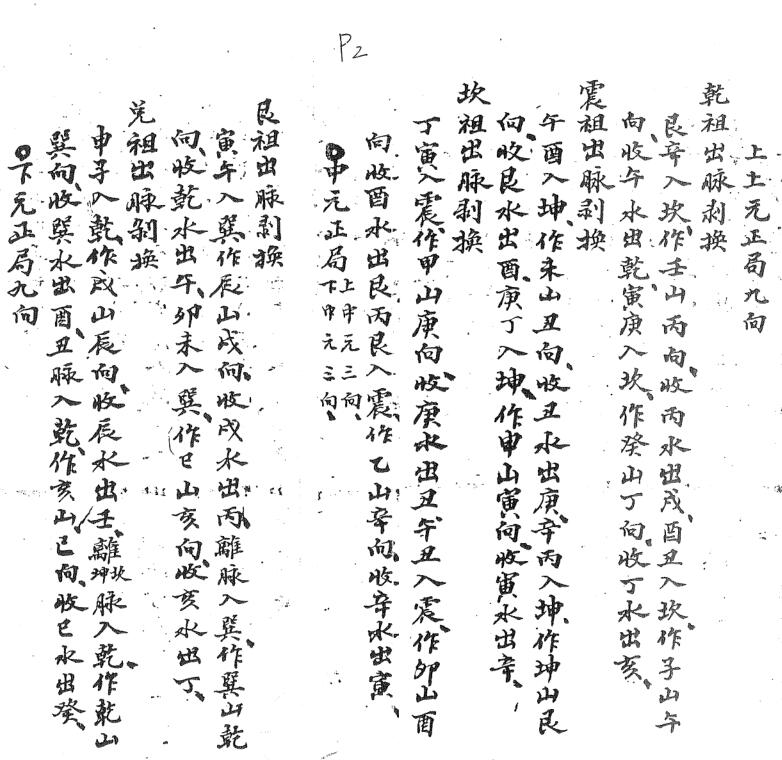 P2
上上元正局九向
乾祖出脉剥換
艮辛入坎、作壬山丙向、收丙水出戌、酉丑入坎、作子山午
向、收午水出乾、寅庚入坎、作癸山丁向、收丁水出亥、
震祖出脉剥換
午酉入坤、作未山丑向、收丑水出庚、辛丙入坤、作坤山艮
向、收艮水出酉、庚丁入坤、作申山寅向、收寅水出辛、
坎祖出脉剥換
丁寅入震、作甲山庚向、收庚水出丑、午丑入震、作卯山酉
向、收酉水出艮、丙艮入震、作乙山辛向、收辛水出寅、
中元正局上中元三向、下中元三向、
艮祖出脉剥換
寅午入巽、作辰山戌向、收戌水出丙、離脉入巽、作巽山乾
向、收乾水出午、卯未入巽、作巳山亥向、收亥水出丁、
兌祖出脉剥換
申子入乾、作戌山辰向、收辰水出壬、離坎坤脉入乾、作乾山
巽向、收巽水出酉、丑脉入乾、作亥山、巳向、收巳水出癸、
下元正局九向